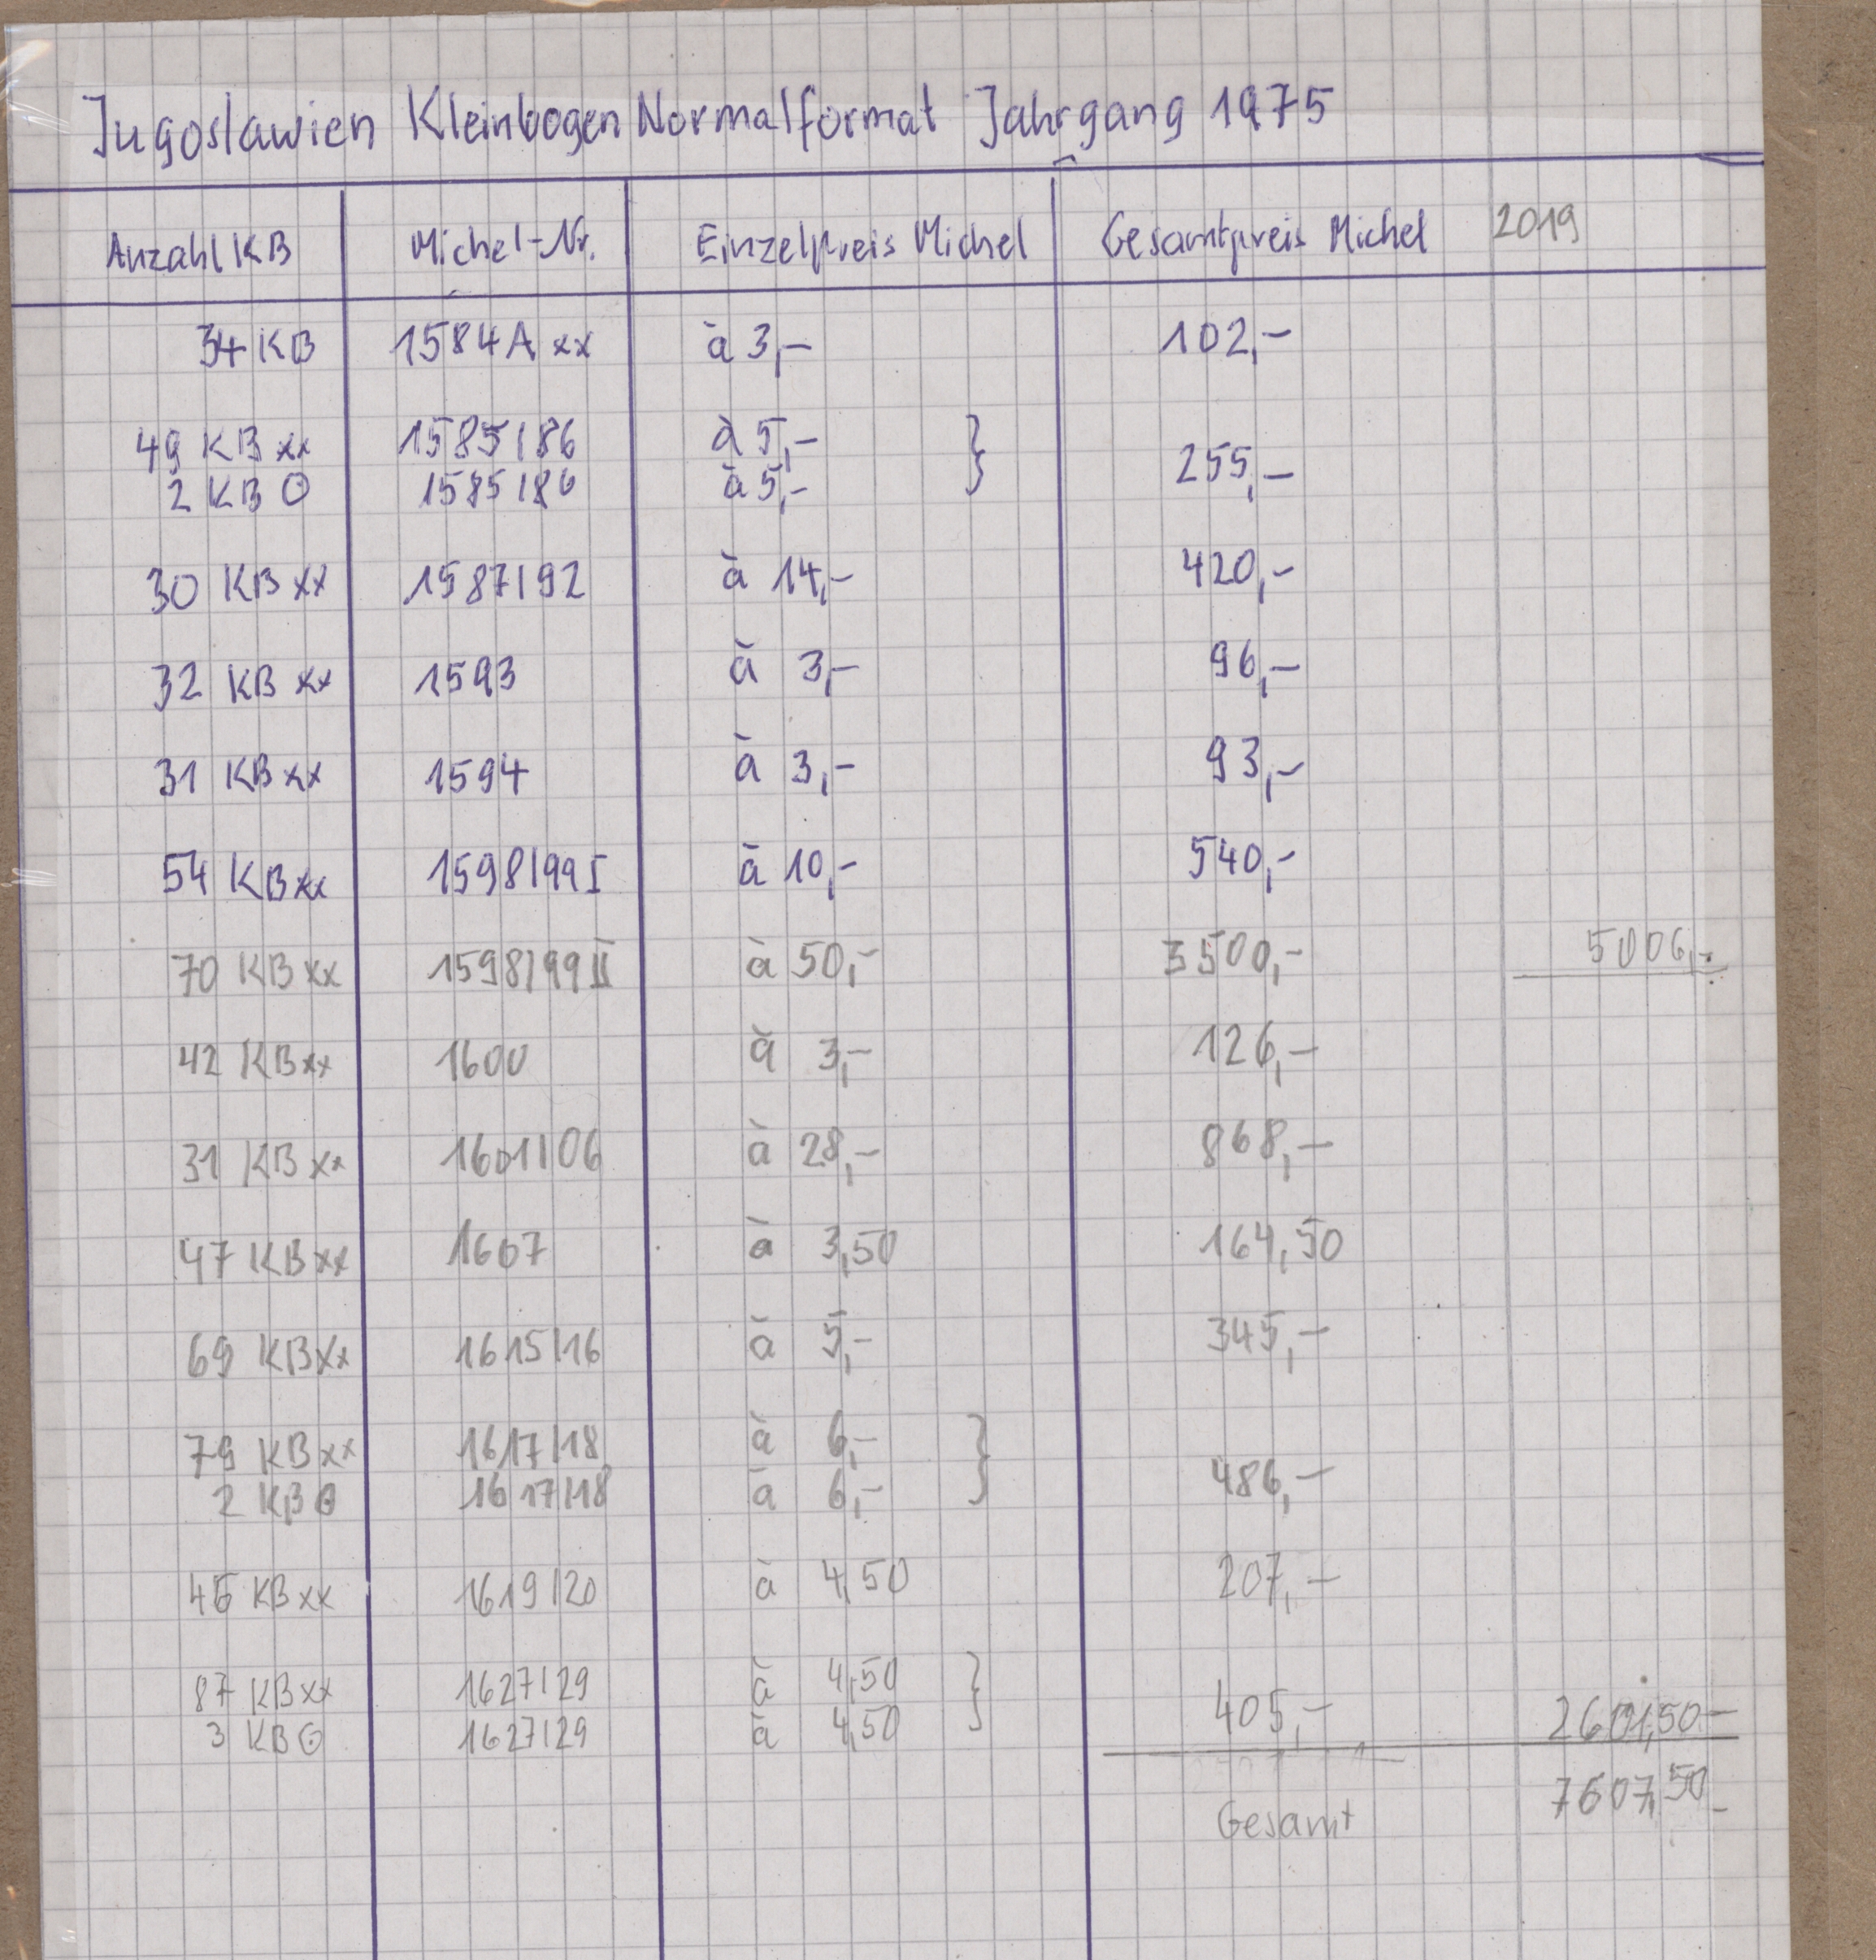 Jugoslawien Kleinbogen Normalformat Jahrgang 1975
Anzahl KB Michel-Nr. Einzelpreis Michel Gesamtpreis Michel 2019
34 KB 1584A xx à 3,- 102,-
49 KB xx 1585/86 à 5,- }
2 KB ⊙ 1585/86 à 5,- 255,-
30 KB xx 1587/92 à 14,- 420,-
32 KB xx 1593 à 3,- 96,-
31 KB xx 1594 à 3,- 93,-
54 KB xx 1598/99 I à 10,- 540,-
70 KB xx 1598/99 II à 50,- 3500,- 5006,-
42 KB xx 1600 à 3,- 126,-
31 KB xx 1601/06 à 28,- 868,-
47 KB xx 1607 à 3,50 164,50
69 KB xx 1615/16 à 5,- 345,-
79 KB xx 1617/18 à 6,- }
2 KB ⊙ 1617/18 à 6,- 486,-
46 KB xx 1619/20 à 4,50 207,-
87 KB xx 1627/29 à 4,50 }
3 KB ⊙ 1627/29 à 4,50 405,- 2601,50-
Gesamt 7607,50-